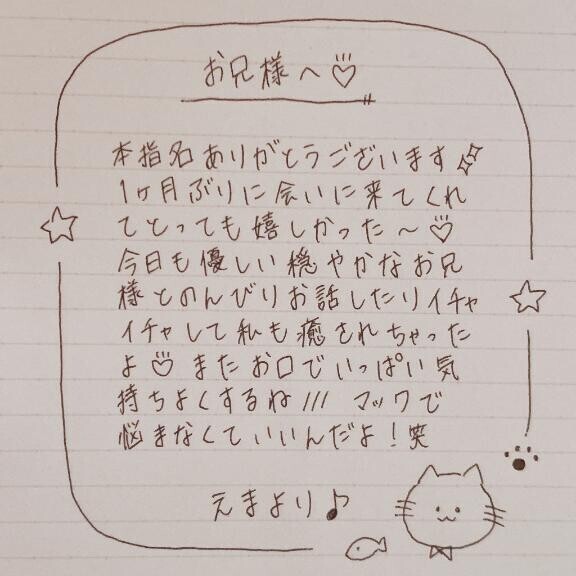 お兄様へ♡
本指名ありがとうございます
1ヶ月ぶりに会いに来てくれ
てとっても嬉しかった〜♡
今日も優しい穏やかなお兄
様とのんびりお話したりイチャ
イチャして私も癒されちゃった
よ♡ またお口でいっぱい気
持ちよくするね/// マックで
悩まなくていいんだよ!笑
えまより♪